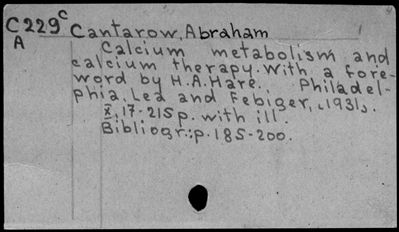 C229c Cantarow, Abraham
A
Calcium metabolism and
calcium therapy. With a fore-
word by H.A. Hare. Philadel-
phia, Lea and Febiger, [1931].
X, 17-215p. with ill.
Bibliogr.: p. 185-200.